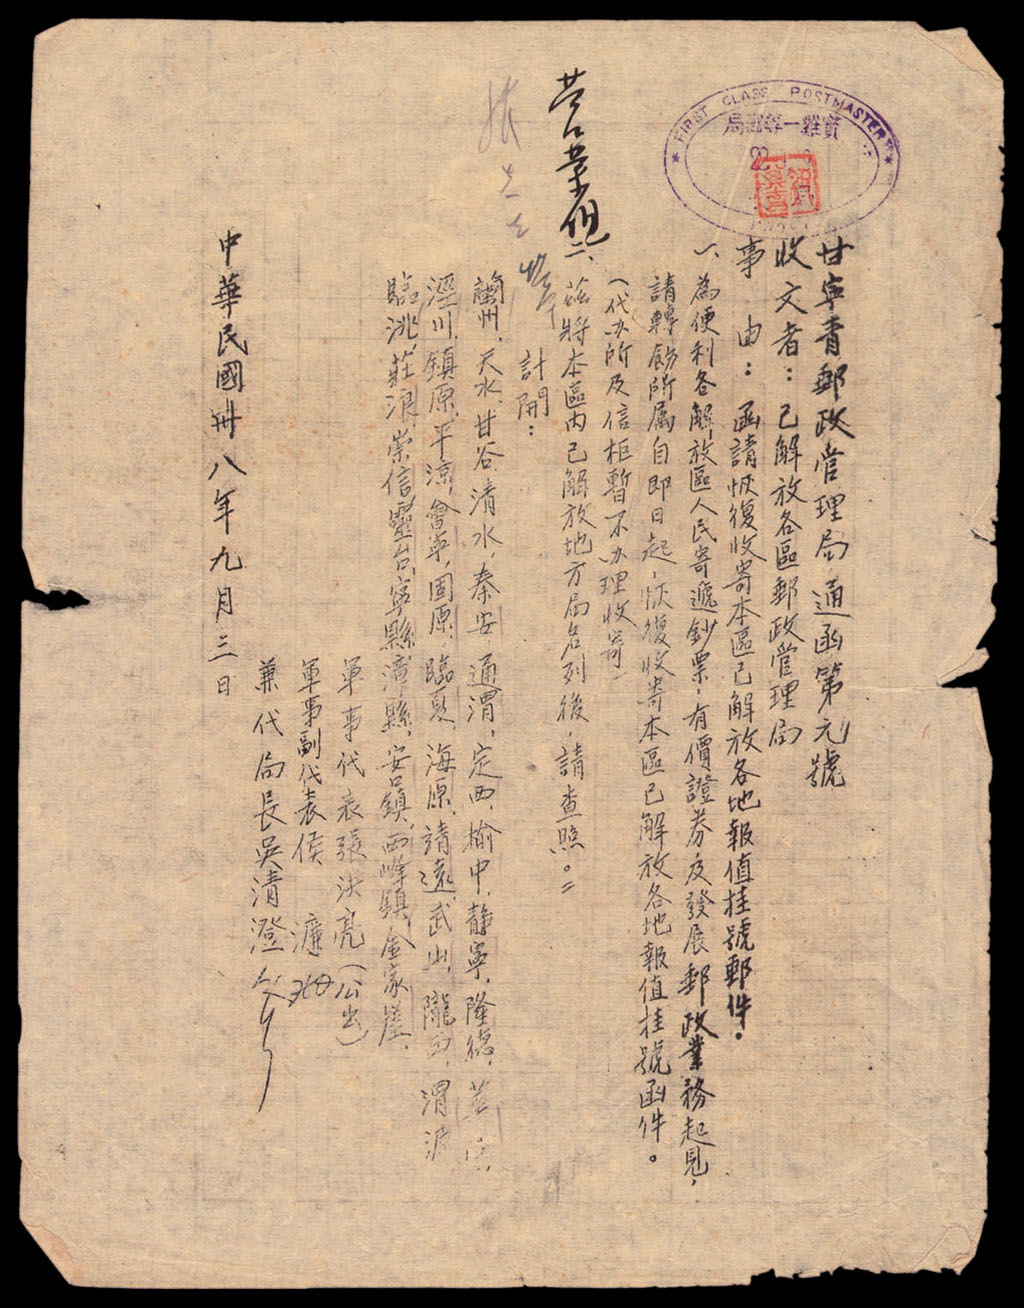 FIRST CLASS POSTMASTER
寶雞一等郵局
甘寧青郵政管理局通函第元號
收文者：已解放各區郵政管理局
事由：函請恢復收寄本區已解放各地報值挂號郵件。
一、為便利各解放區人民寄遞鈔票，有價證券及發展郵政業務起見，
請轉飭所属自即日起，恢復收寄本區已解放各地報值挂號函件。
（代办所及信柜暫不办理收寄）
二、茲將本區内已解放地方局名列後，請查照。
營業組
計開：
蘭州，天水，甘谷，清水，秦安，通渭，定西，榆中，静寧，隆德，
涇川，鎮原，平涼，會寧，固原，臨夏，海原，靖遠，武山，隴西，渭源
臨洮，莊浪，崇信，靈台，寧縣，漳縣，安口鎮，西峰鎮，金家崖，
軍事代表張洪亮（公出）
軍事副代表侯
兼代局長吳清澄
中華民國卅八年九月三日